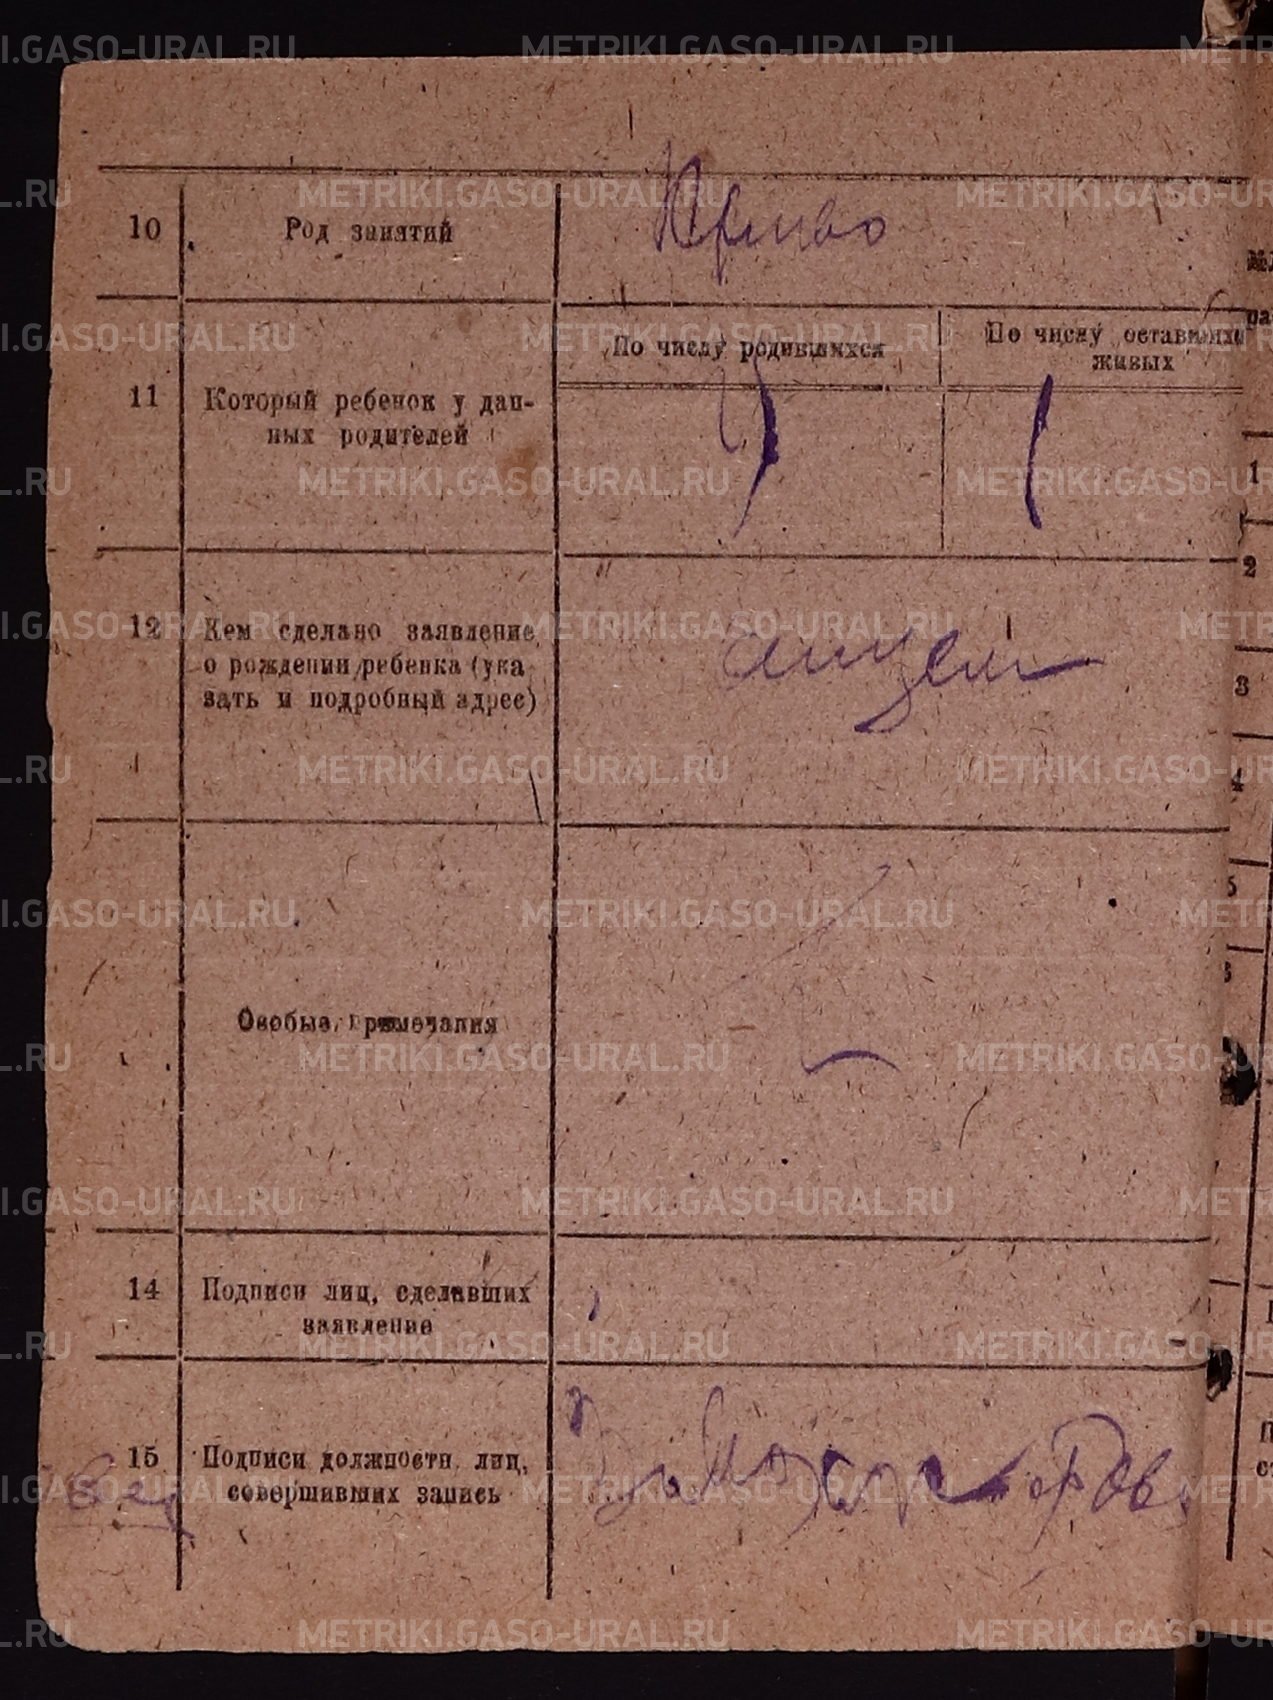 10 Род занятий
11 Который ребенок у дан-
ных родителей
По числу родившихся
По числу оставшихся
живых
12 Кем сделано заявление
о рождении ребенка (ука
зать и подробный адрес)
отцем
Особые примечания
14 Подписи лиц, сделавших
заявление
15 Подписи должности лиц,
совершивших запись
METRIKI.GASO-URAL.RU